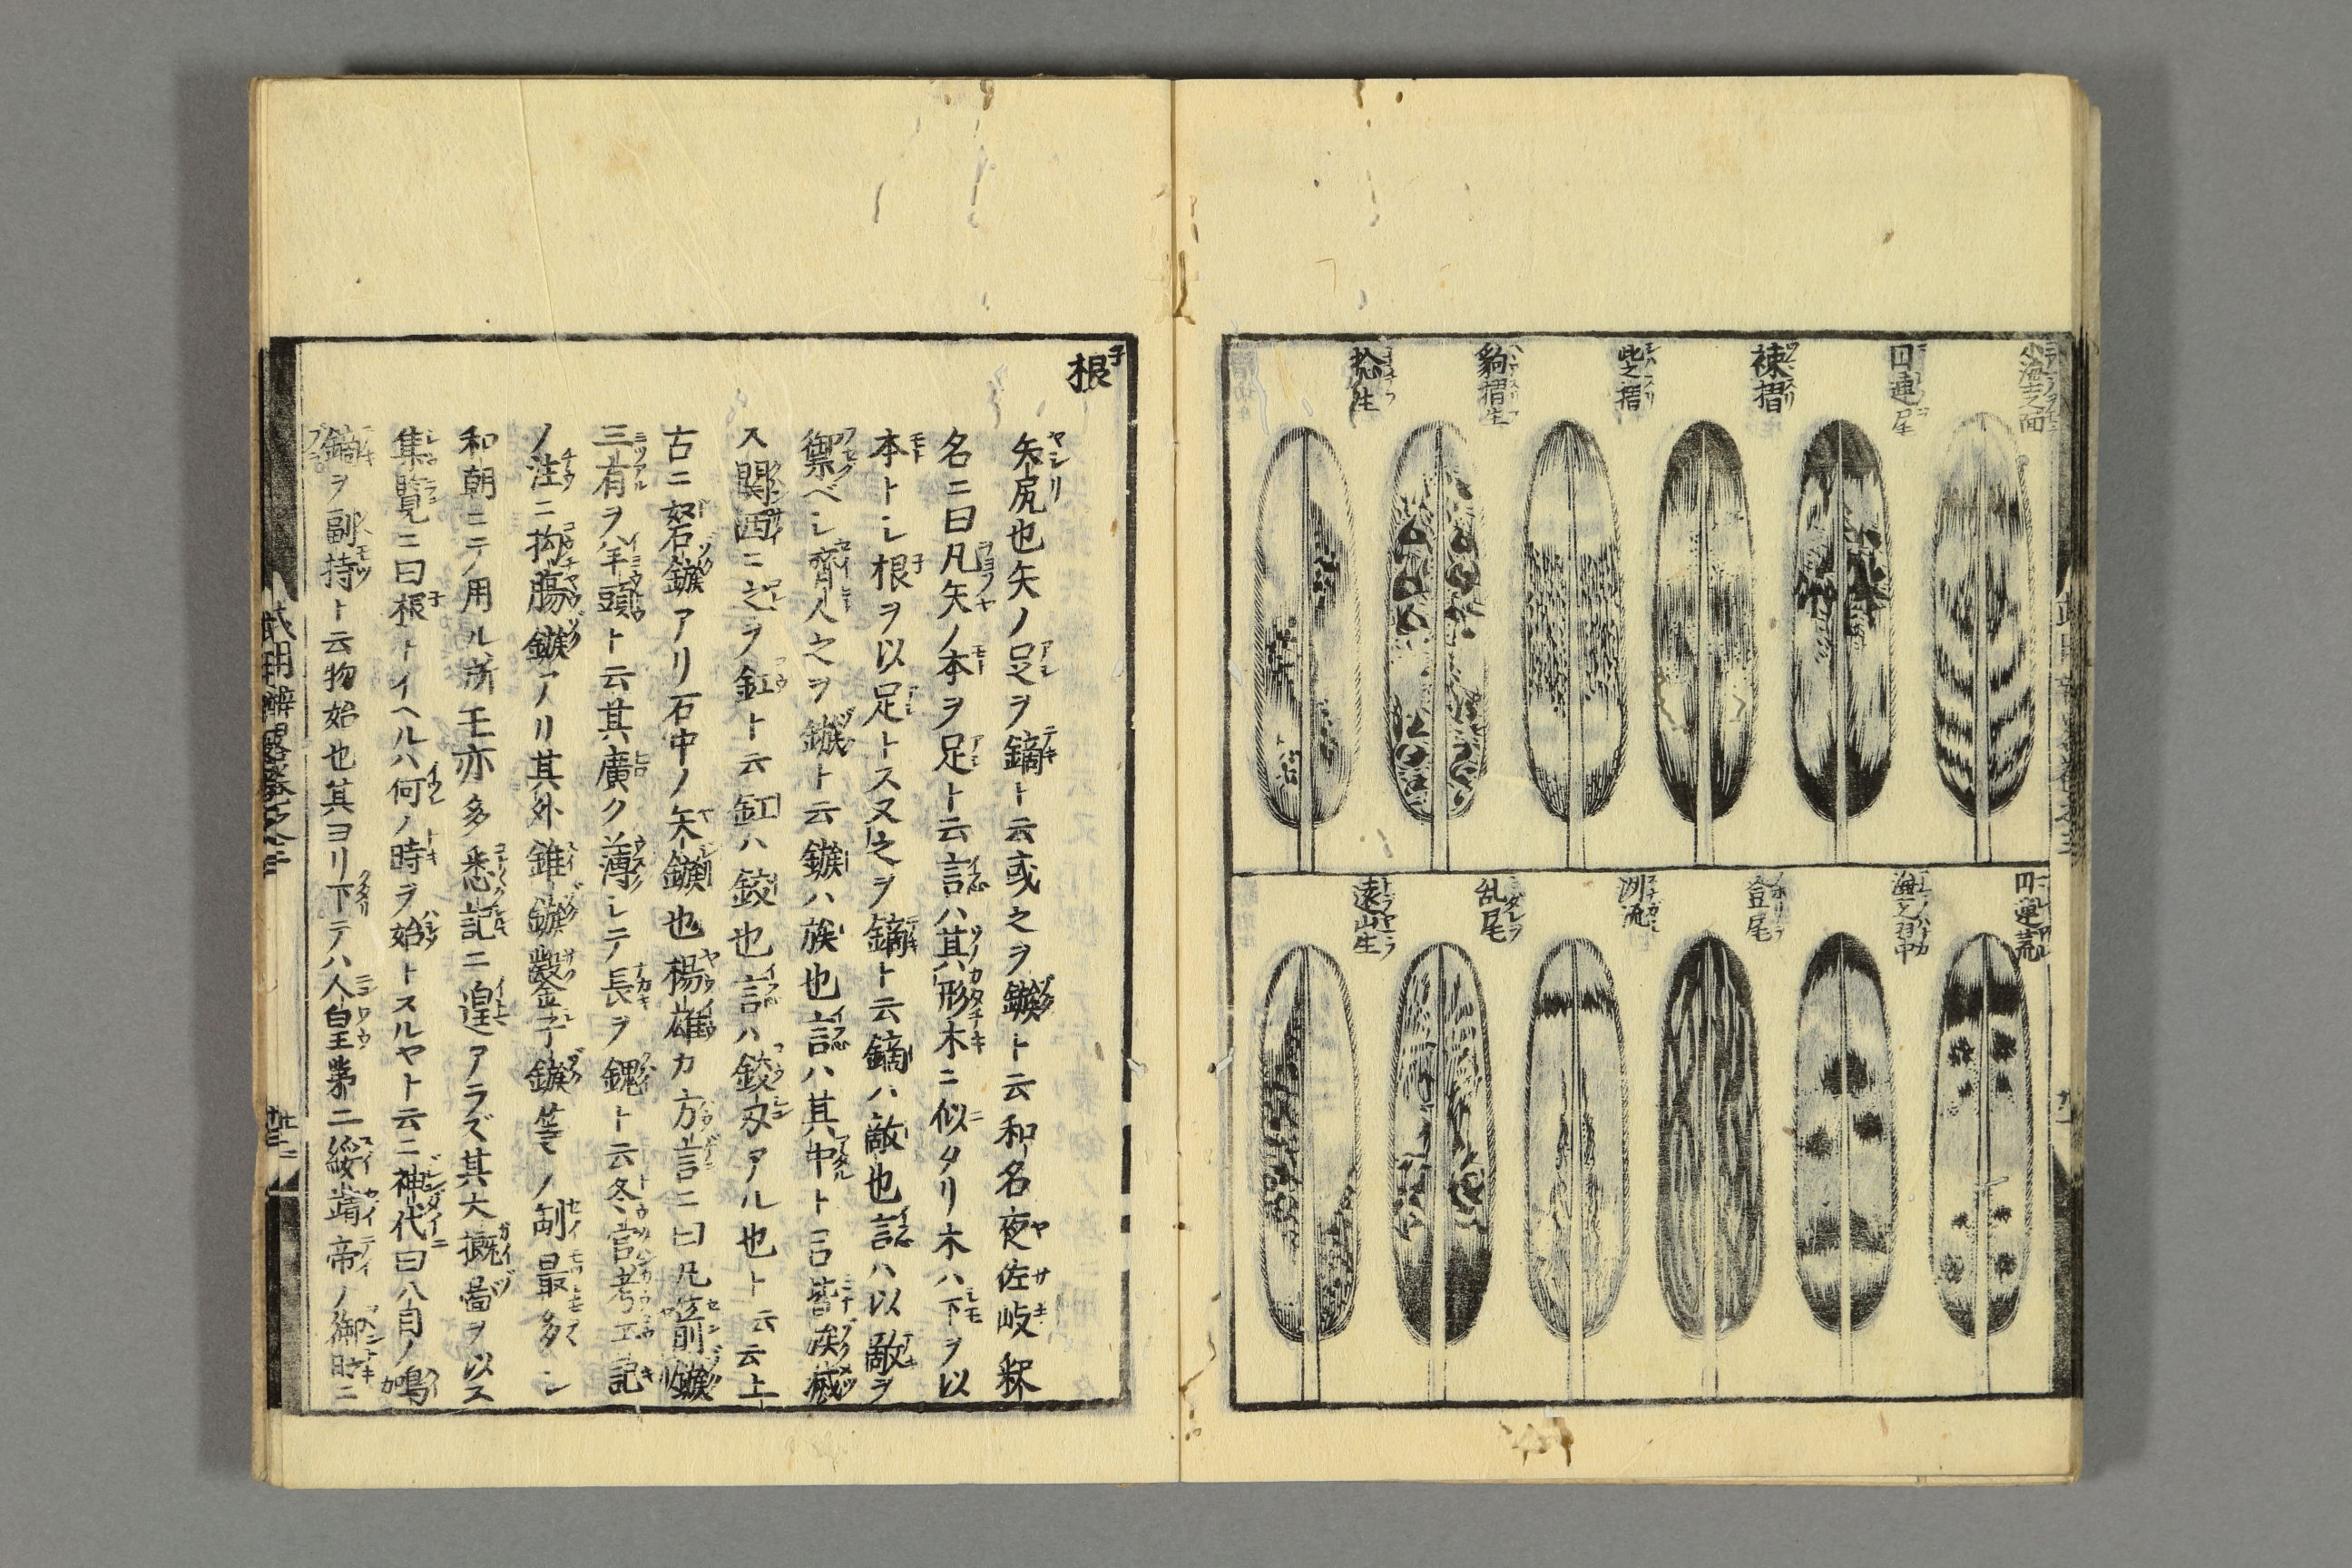 円連尾
裱摺
此之摺
豹摺生
捻生
円連荒
海之羽中
登尾
洲流
乱尾
遠山生
根
矢尻也矢ノ足ヲ鏑ト云或之ヲ鏃ト云和名夜佐岐釈
名ニ曰凡矢ノ本ヲ足ト云言ハ其形木ニ似タリ木ハ下ヲ以
本トシ根ヲ以足トス又之ヲ鏑ト云鏑ハ敵也言ハ以敵ヲ
禦ベシ齊人之ヲ鏃ト云鏃ハ族也言ハ其中ト言皆族滅
ス関西ニ之ヲ釭ト云釭ハ鉸也言ハ鉸刃アル也ト云云上
古ニ砮鏃アリ石中ノ矢鏃也楊雄カ方言ニ曰凡箭鏃
三有ヲ羊頭ト云其廣ク薄シテ長ヲ錕ト云冬官考工記
ノ注ニ拘腸鏃アリ其外錐鏃鑿子鏃等ノ制最多シ
和朝ニテ用ル所モ亦多悉記ニ遑アラズ其大概啚ヲ以ス
集覧ニ曰根トイヘルハ何ノ時ヲ始トスルヤト云ニ神代曰八目ノ鳴
鏑ヲ副持ト云物始也其ヨリ下テハ人皇第二綏靖帝ノ御時ニ
武用辨略巻之三